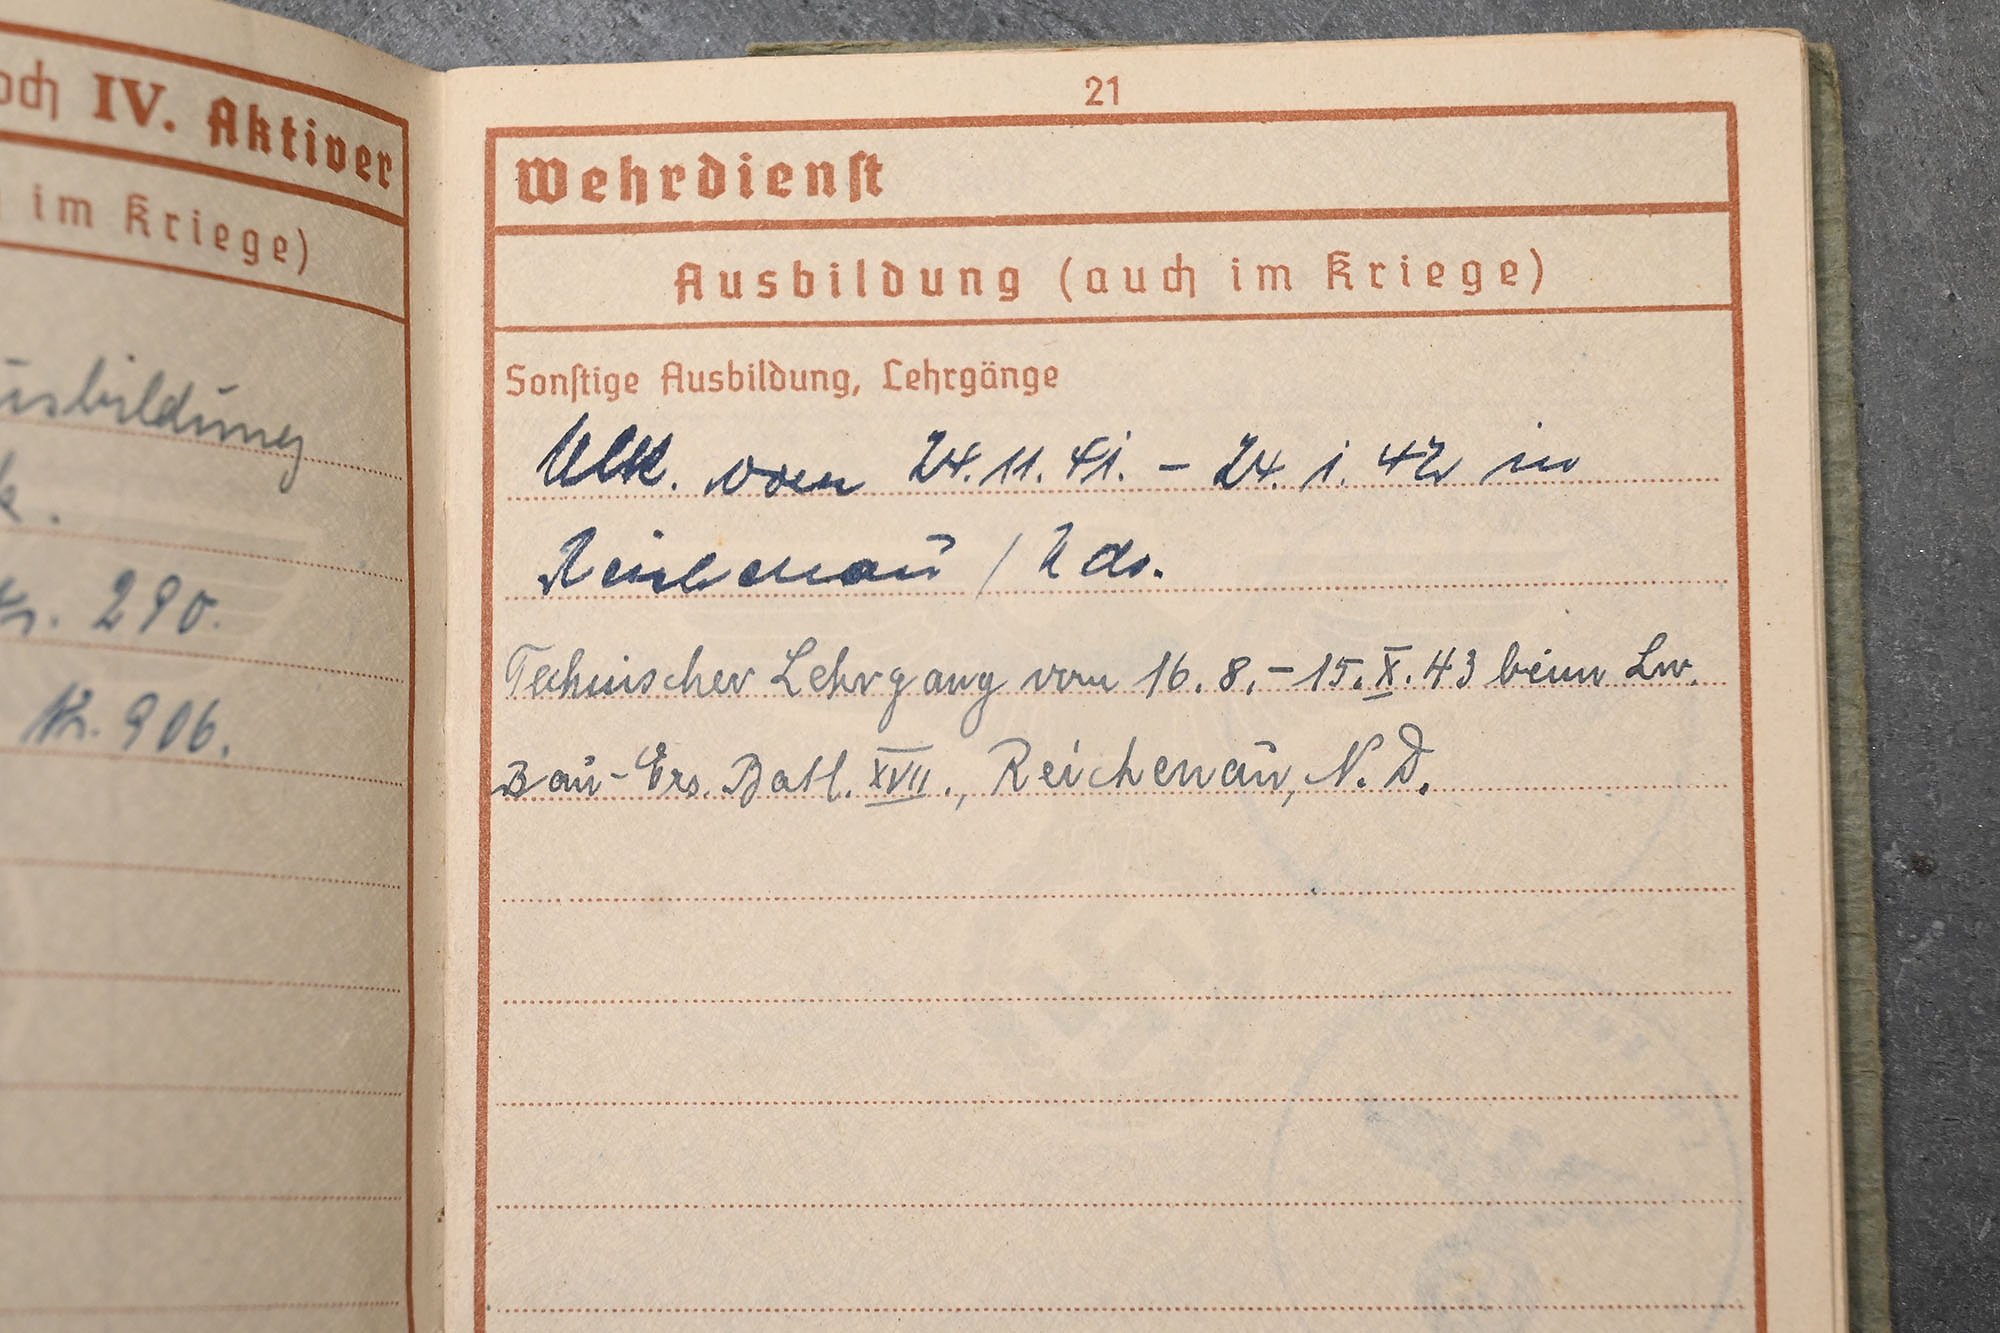 och IV. Aktiver
im Kriege)
Ausbildung
k.
Nr. 290.
Nr. 906.
21
Wehrdienst
Ausbildung (auch im Kriege)
Sonstige Ausbildung, Lehrgänge
vom 24.11.41. – 24.1.42 in
Reichenau /
Technischer Lehrgang vom 16.8.–15.X.43 beim Lw.
Bau-Ers. Batl. XVII., Reichenau, N.D.